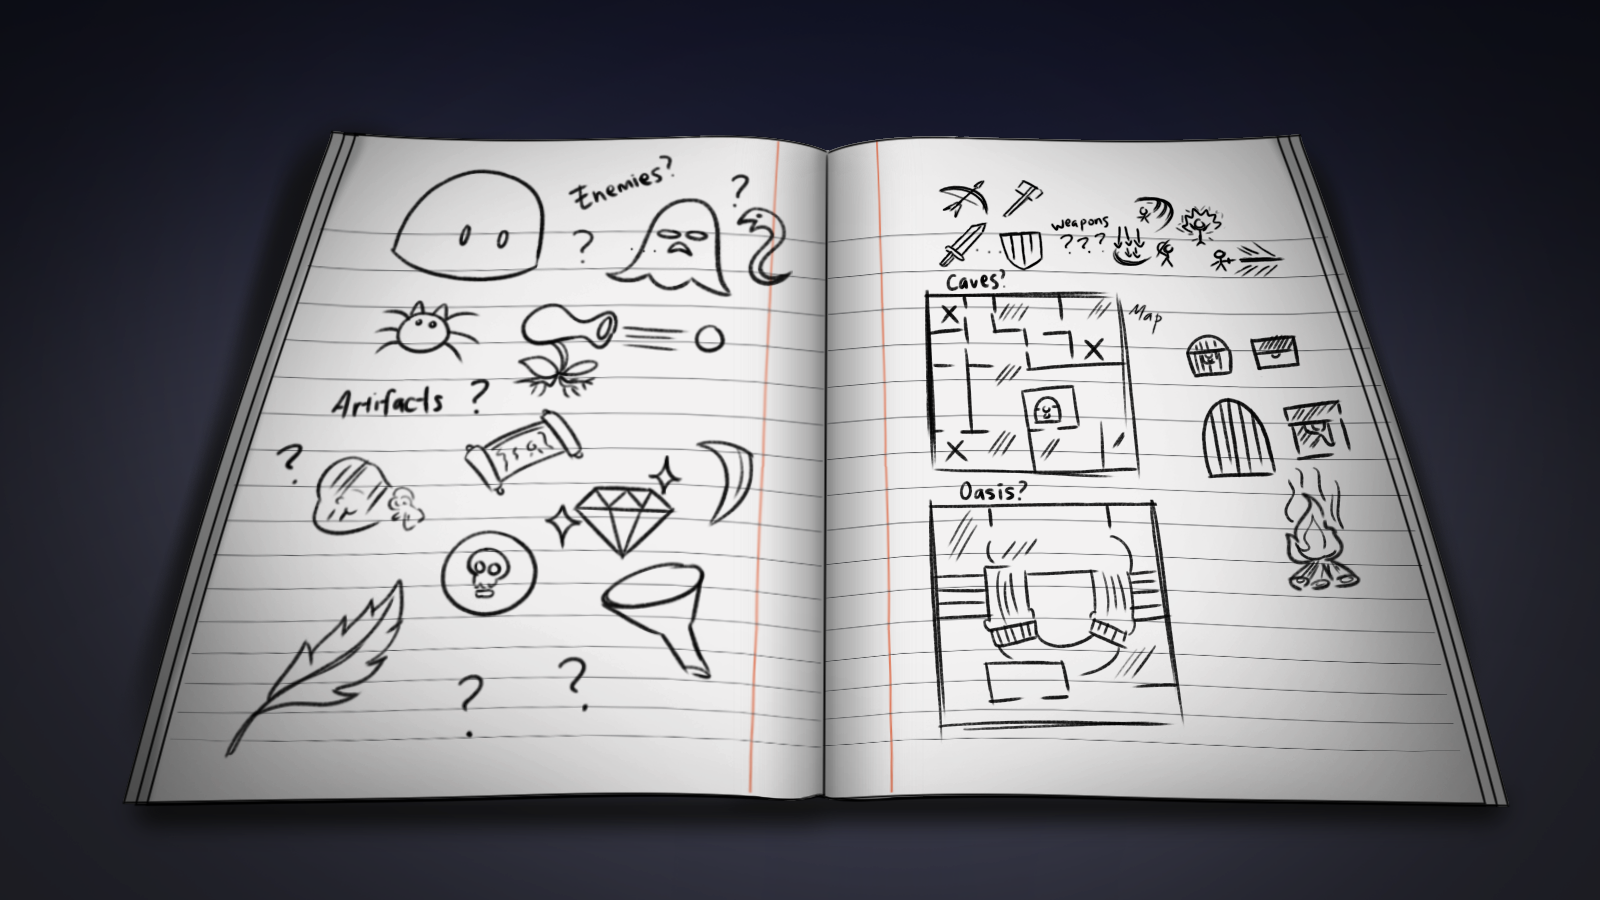 Enemies?
?
?
Artifacts ?
?
?
?
weapons
? ? ?
Caves?
X
Map
X
X
Oasis?